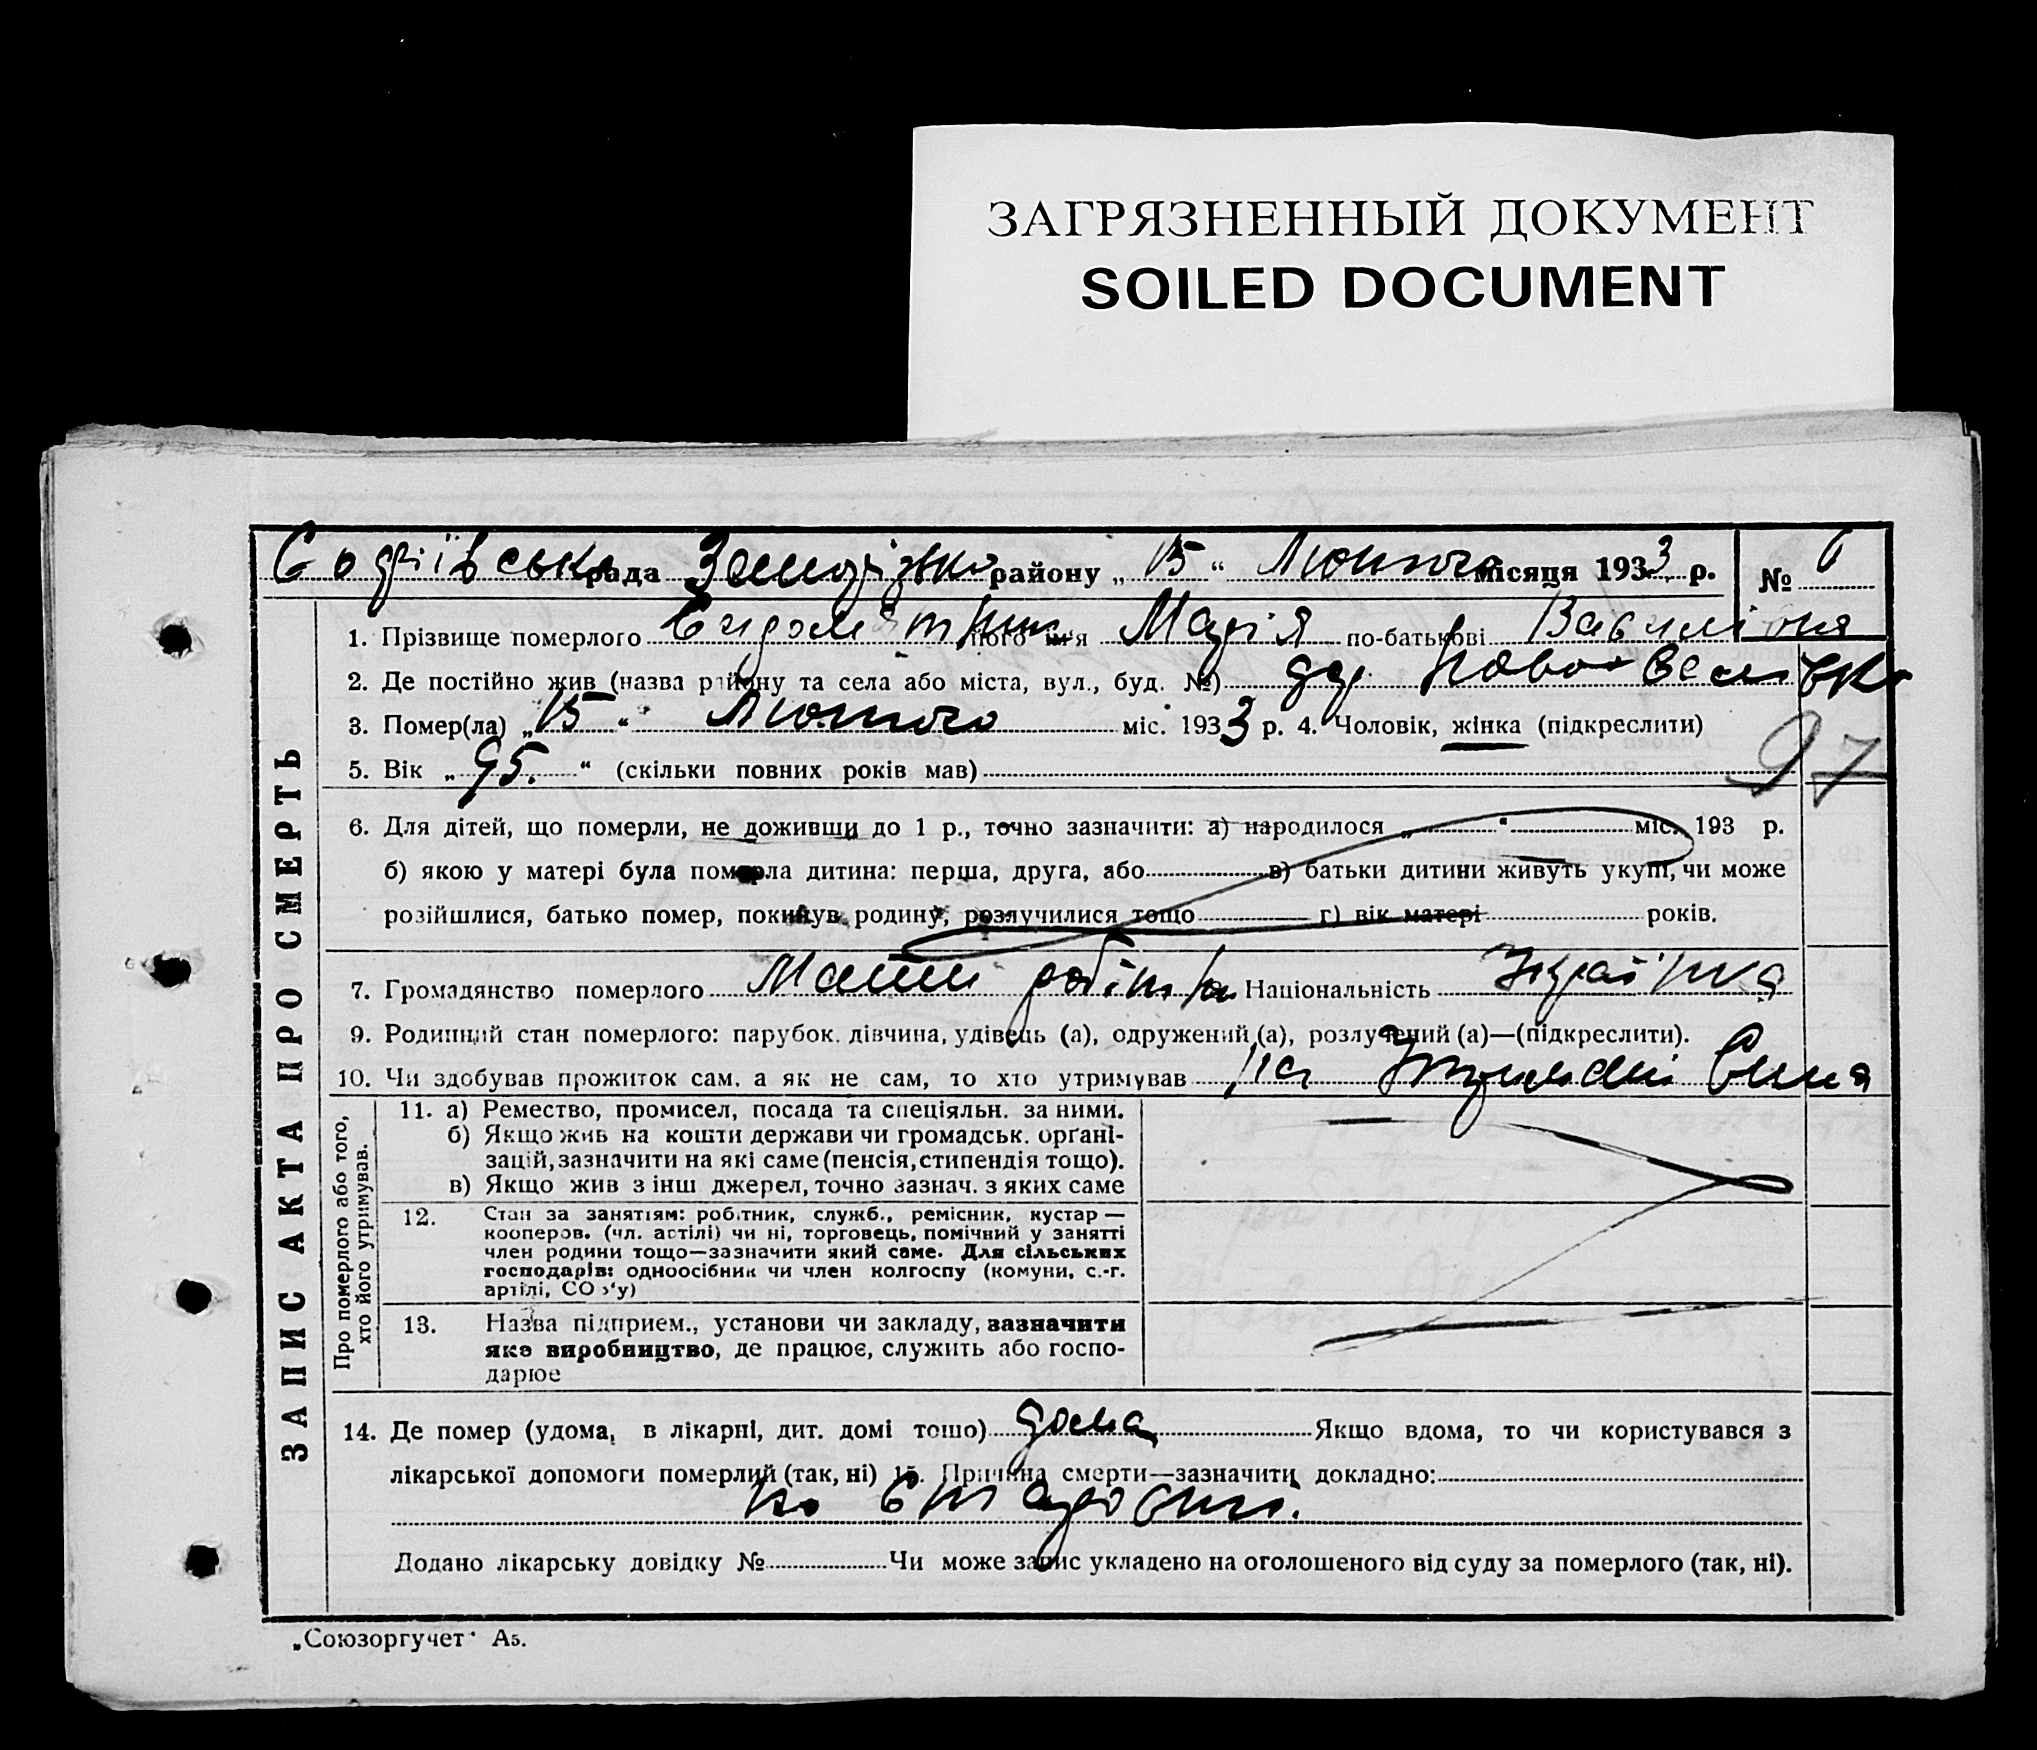 ЗАГРЯЗНЕННЫЙ ДОКУМЕНТ
SOILED DOCUMENT
рада району „15“ Лютого місяця 1933 р. №
1. Прізвище померлого його ім'я Марія по-батькові
2. Де постійно жив (назва району та села або міста, вул., буд. №)
3. Помер(ла) „15“ Лютого міс. 1933 р. 4. Чоловік, жінка (підкреслити)
97
5. Вік „95.“ (скільки повних років мав)
6. Для дітей, що померли, не доживши до 1 р., точно зазначити: а) народилося „ “ міс. 193 р.
б) якою у матері була померла дитина: перша, друга, або в) батьки дитини живуть укупі, чи може
розійшлися, батько помер, покинув родину, розлучилися тощо г) вік матері років.
7. Громадянство померлого Національність
9. Родинний стан померлого: парубок, дівчина, удівець (а), одружений (а), розлучений (а)—(підкреслити).
10. Чи здобував прожиток сам, а як не сам, то хто утримував на
ЗАПИС АКТА ПРО СМЕРТЬ
Про померлого або того,
хто його утримував.
11. а) Ремество, промисел, посада та спеціяльн. за ними.
б) Якщо жив на кошти держави чи громадськ. орґані-
зацій, зазначити на які саме (пенсія, стипендія тощо).
в) Якщо жив з інш джерел, точно зазнач. з яких саме
12. Стан за заняттям: робітник, служб., ремісник, кустар—
кооперов. (чл. артілі) чи ні, торговець, помічний у занятті
член родини тощо—зазначити який саме. Для сільських
господарів: одноосібник чи член колгоспу (комуни, с.-г.
артілі, СОЗ'у)
13. Назва підприєм., установи чи закладу, зазначити
яке виробництво, де працює, служить або госпо-
дарює
14. Де помер (удома, в лікарні, дит. домі тощо) дома Якщо вдома, то чи користувався з
лікарської допомоги померлий (так, ні) 15. Причина смерти—зазначити докладно:
по старости.
Додано лікарську довідку № Чи може запис укладено на оголошеного від суду за померлого (так, ні).
„Союзоргучет“ А5.